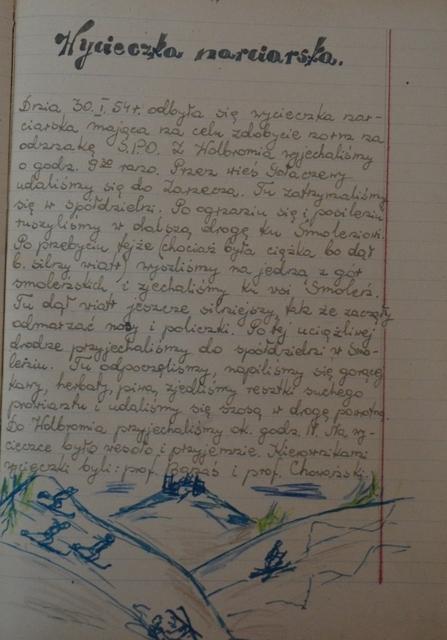 Wycieczka narciarska.
Dnia 30.I.54r. odbyła się wycieczka nar-
ciarska mająca na celu zdobycie norm na
odznakę S.P.O. Z Wolbromia wyjechaliśmy
o godz. 9³⁰ rano. Przez wieś Gołaczewy
udaliśmy się do Zarzecza. Tu zatrzymaliśmy
się w spółdzielni. Po ogrzaniu się i posileniu
ruszyliśmy w dalszą drogę ku Smoleniowi.
Po przebyciu tejże (chociaż była ciężka bo dął
b. silny wiatr) wyszliśmy na jedną z gór
smoleńskich i zjechaliśmy ku wsi Smoleń.
Tu dął wiatr jeszcze silniejszy, tak że zaczęły
odmarzać nosy i policzki. Po tej uciążliwej
drodze przyjechaliśmy do spółdzielni w Smo-
leniu. Tu odpoczęliśmy, napiliśmy się gorącej
kawy, herbaty, piwa, zjedliśmy resztki suchego
prowiantu i udaliśmy się szosą w drogę powrotną.
Do Wolbromia przyjechaliśmy ok. godz. 17. Na wy-
cieczce było wesoło i przyjemnie. Kierownikami
wycieczki byli: prof. i prof.